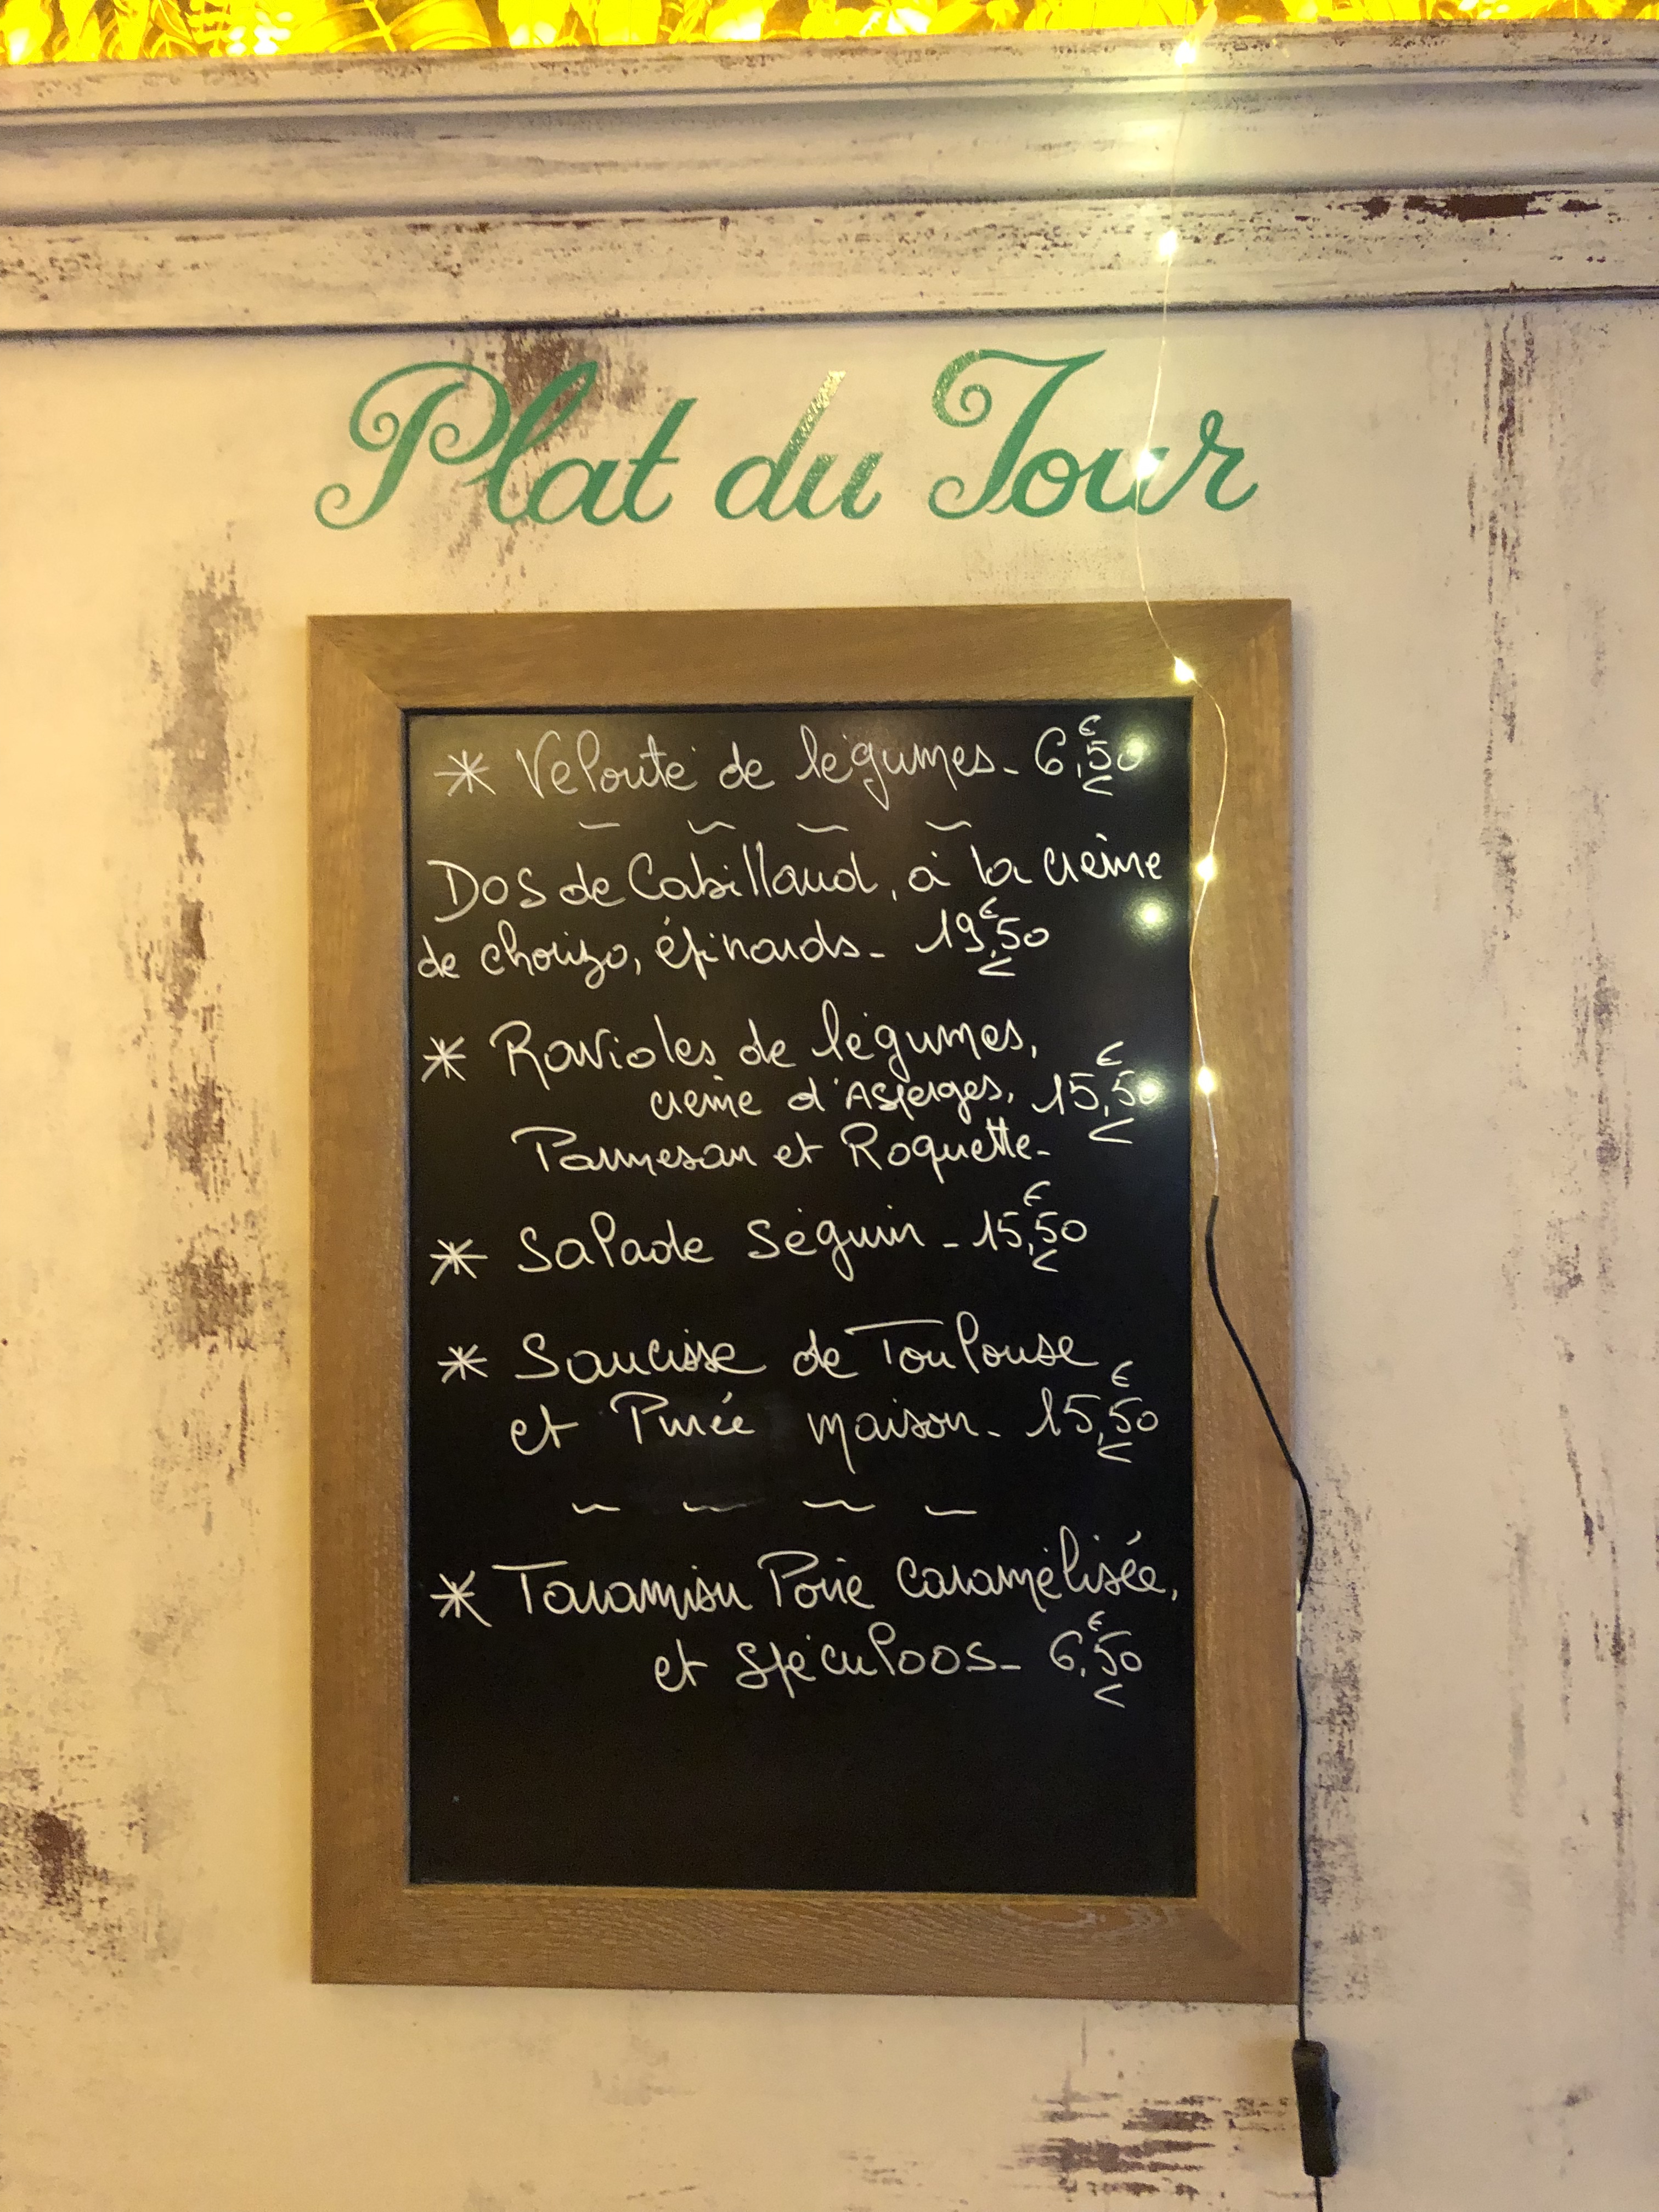 Plat du Jour
* Velouté de légumes - 6,50 €
Dos de Cabillaud, à la crème
de chorizo, épinards - 19,50 €
* Ravioles de légumes,
crème d'Asperges, 15,50 €
Parmesan et Roquette -
* Salade Séguin - 15,50 €
* Saucisse de Toulouse
et Purée maison - 15,50 €
* Taramisu Poire caramélisée,
et Spéculoos - 6,50 €